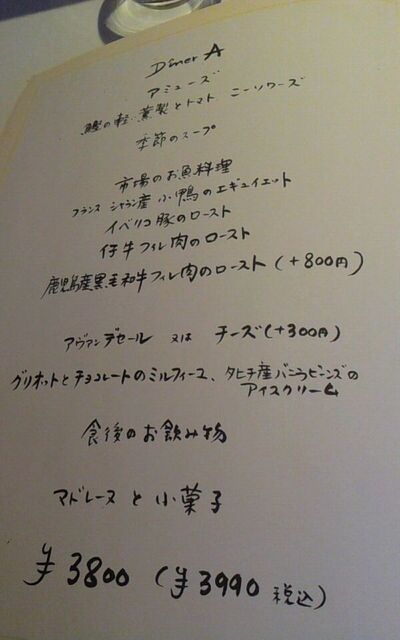 Diner A
アミューズ
鰹の軽い薫製とトマト ニーソワーズ
季節のスープ
市場のお魚料理
フランス シャラン産 小鴨のエギュイエット
イベリコ豚のロースト
仔牛フィレ肉のロースト
鹿児島産黒毛和牛フィレ肉のロースト (+800円)
アヴァンデセール 又は チーズ(+300円)
グリオットとチョコレートのミルフィーユ、タヒチ産バニラビーンズの
アイスクリーム
食後のお飲み物
マドレーヌと小菓子
¥3800 (¥3990 税込)